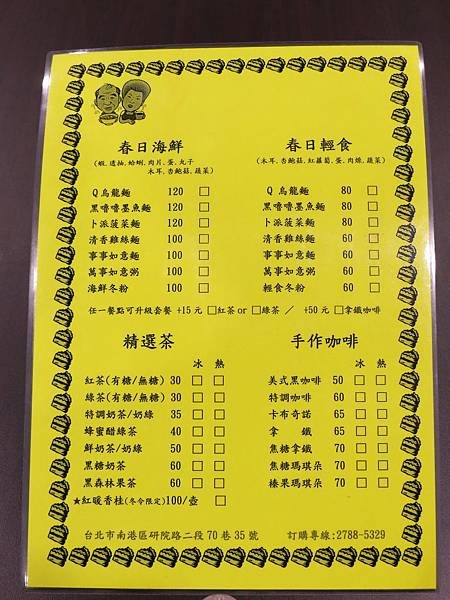 春日海鮮
(蝦,透抽,蛤蜊,肉片,蛋,丸子
木耳,杏鮑菇,蔬菜)
Q烏龍麵 120 □
黑嚕嚕墨魚麵 120 □
卜派菠菜麵 120 □
清香雞絲麵 100 □
事事如意麵 100 □
萬事如意粥 100 □
海鮮冬粉 100 □
春日輕食
(木耳,杏鮑菇,紅蘿蔔,蛋,肉絲,蔬菜)
Q烏龍麵 80 □
黑嚕嚕墨魚麵 80 □
卜派菠菜麵 80 □
清香雞絲麵 60 □
事事如意麵 60 □
萬事如意粥 60 □
輕食冬粉 60 □
任一餐點可升級套餐 +15元 □紅茶or□綠茶 / +50元□拿鐵咖啡
精選茶
冰 熱
紅茶(有糖/無糖) 30 □ □
綠茶(有糖/無糖) 30 □ □
特調奶茶/奶綠 35 □ □
蜂蜜醋綠茶 40 □ □
鮮奶茶/奶綠 50 □ □
黑糖奶茶 60 □ □
黑森林果茶 60 □ □
★紅暖香桂(冬令限定)100/壺 □
手作咖啡
冰 熱
美式黑咖啡 50 □ □
特調咖啡 60 □ □
卡布奇諾 65 □ □
拿 鐵 65 □ □
焦糖拿鐵 70 □ □
焦糖瑪琪朵 70 □ □
榛果瑪琪朵 70 □ □
台北市南港區研院路二段70巷35號 訂購專線:2788-5329